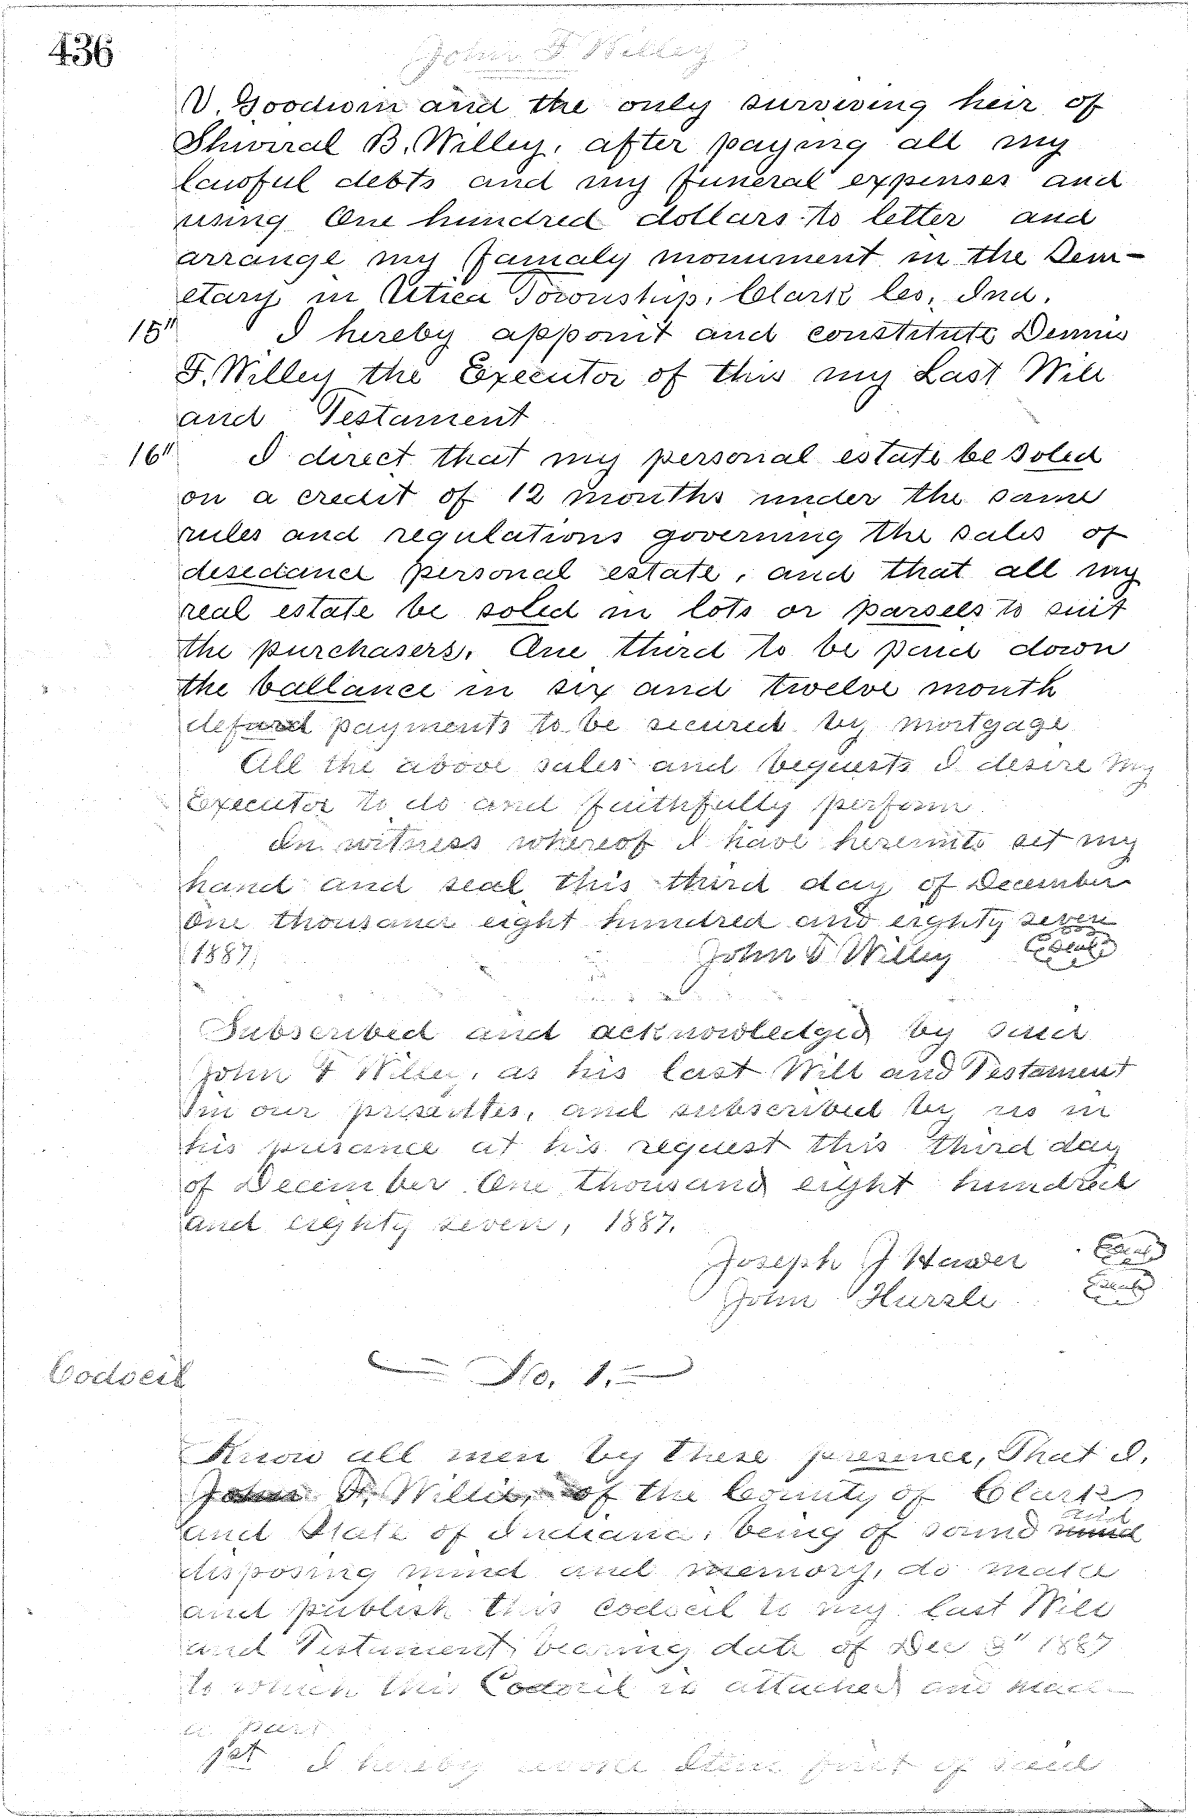 436
John F Willey
V. Goodwin and the only surviving heir of
Shiviral B. Willey, after paying all my
lawful debts and my funeral expenses and
using One hundred dollars to letter and
arrange my famaly monument in the Sem-
etary in Utica Township, Clark Co, Ind.
15" I hereby appoint and constitute Dennis
F. Willey the Executor of this my Last Will
and Testament
16" I direct that my personal estate be soled
on a credit of 12 months under the same
rules and regulations governing the sales of
desedance personal estate, and that all my
real estate be soled in lots or parsels to suit
the purchasers. One third to be paid down
the ballance in six and twelve month
defured payments to be secured by mortgage
All the above sales and bequests I desire my
Executor to do and faithfully perform
In witness whereof I have hereunto set my
hand and seal this third day of December
One thousand eight hundred and eighty seven
1887, John F Willey Seal
Subscribed and acknowledged by said
John F Willey, as his last Will and Testament
in our presentes, and subscribed by us in
his presance at his request this third day
of December One thousand eight hundred
and eighty seven, 1887.
Joseph J Hawer Seal
John Hurzle Seal
Codocil No. 1.
Know all men by these presence, That I,
John F. Willie, of the County of Clark
and State of Indiana, being of sound and
disposing mind and memory, do make
and publish this codocil to my last Will
and Testament bearing date of Dec 3" 1887
to which this Codocil is attached and made
a part
1st I hereby Item first of said